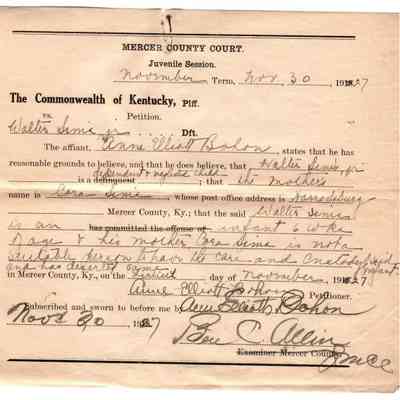 MERCER COUNTY COURT.
Juvenile Session.
November Term, Nov. 30 1927
The Commonwealth of Kentucky, Plff.
vs. Petition.
Walter Sims jr Dft.
The affiant, Anne Elliott Bohon, states that he has
reasonable grounds to believe, and that he does believe, that Walter Sims, jr
dependent & neglected child
is a delinquent; that the mother's
name is Cora Sims, whose post office address is Harrodsburg
Mercer County, Ky.; that the said Walter Sims
is an has committed the offense of infant 6 wks
of age & his mother, Cora Sims is not a
suitable person to have the care and custody of said infant
and has deserted same
in Mercer County, Ky., on the day of November, 1927
Anne Elliott Bohon Petitioner.
Subscribed and sworn to before me by Anne Elliott Bohon
Nov 30 1927
Ben C. Allin
Examiner Mercer County